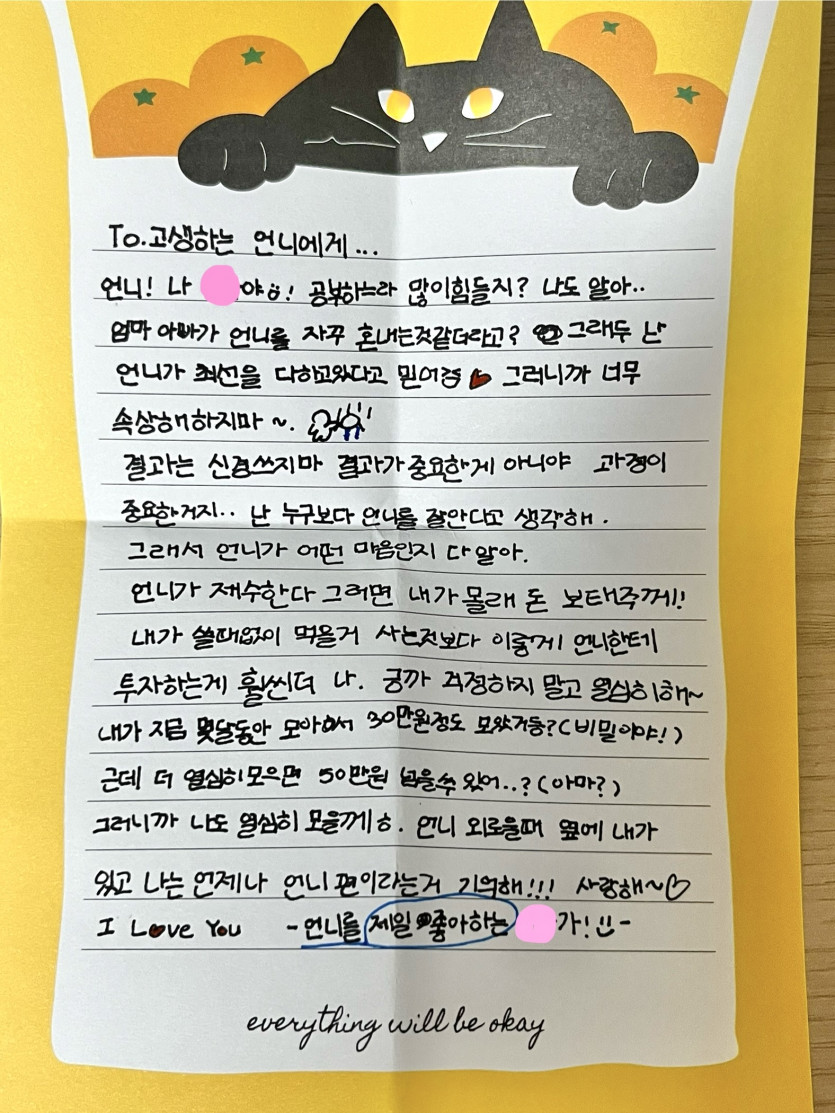 To.고생하는 언니에게...
언니! 나 야ㅎ! 공부하느라 많이힘들지? 나도 알아..
엄마 아빠가 언니를 자꾸 혼내는것같더라고? 그래두 난
언니가 최선을 다하고왔다고 믿어용 ♥ 그러니까 너무
속상해하지마 ~.
결과는 신경쓰지마 결과가중요한게 아니야 과정이
중요한거지.. 난 누구보다 언니를 잘안다고 생각해.
그래서 언니가 어떤 마음인지 다알아.
언니가 재수한다 그러면 내가몰래 돈 보태주께!
내가 쓸때없이 먹을거 사는것보다 이렇게 언니한테
투자하는게 훨씬더 나. 궁까 걱정하지 말고 열심히해~
내가 지금 몇달동안 모아서 30만원정도 모았거등?(비밀이야!)
근데 더 열심히모으면 50만원 넘을쑤 있어..?(아마?)
그러니까 나도 열심히 모을께ㅎ. 언니 외로울때 옆에 내가
있고 나는 언제나 언니 편이라는거 기억해!!! 사랑해~♡
I Love You -언니를 제일 좋아하는 가!-
everything will be okay